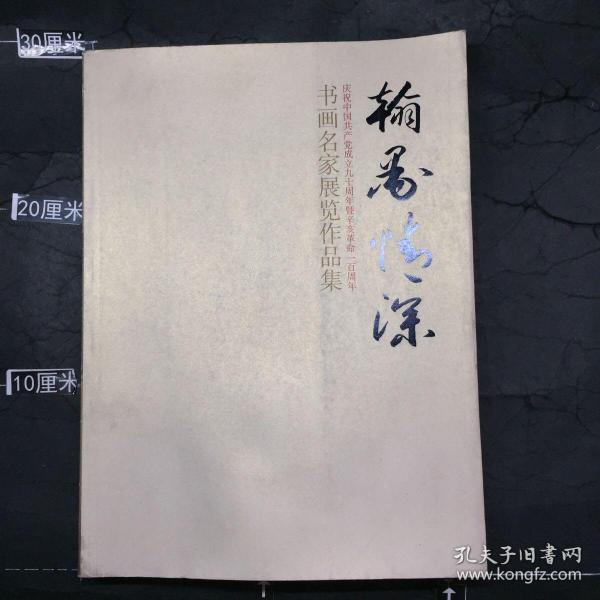 翰墨情深
庆祝中国共产党成立九十周年暨辛亥革命一百周年
书画名家展览作品集
30厘米
20厘米
10厘米
孔夫子旧书网
www.kongfz.com